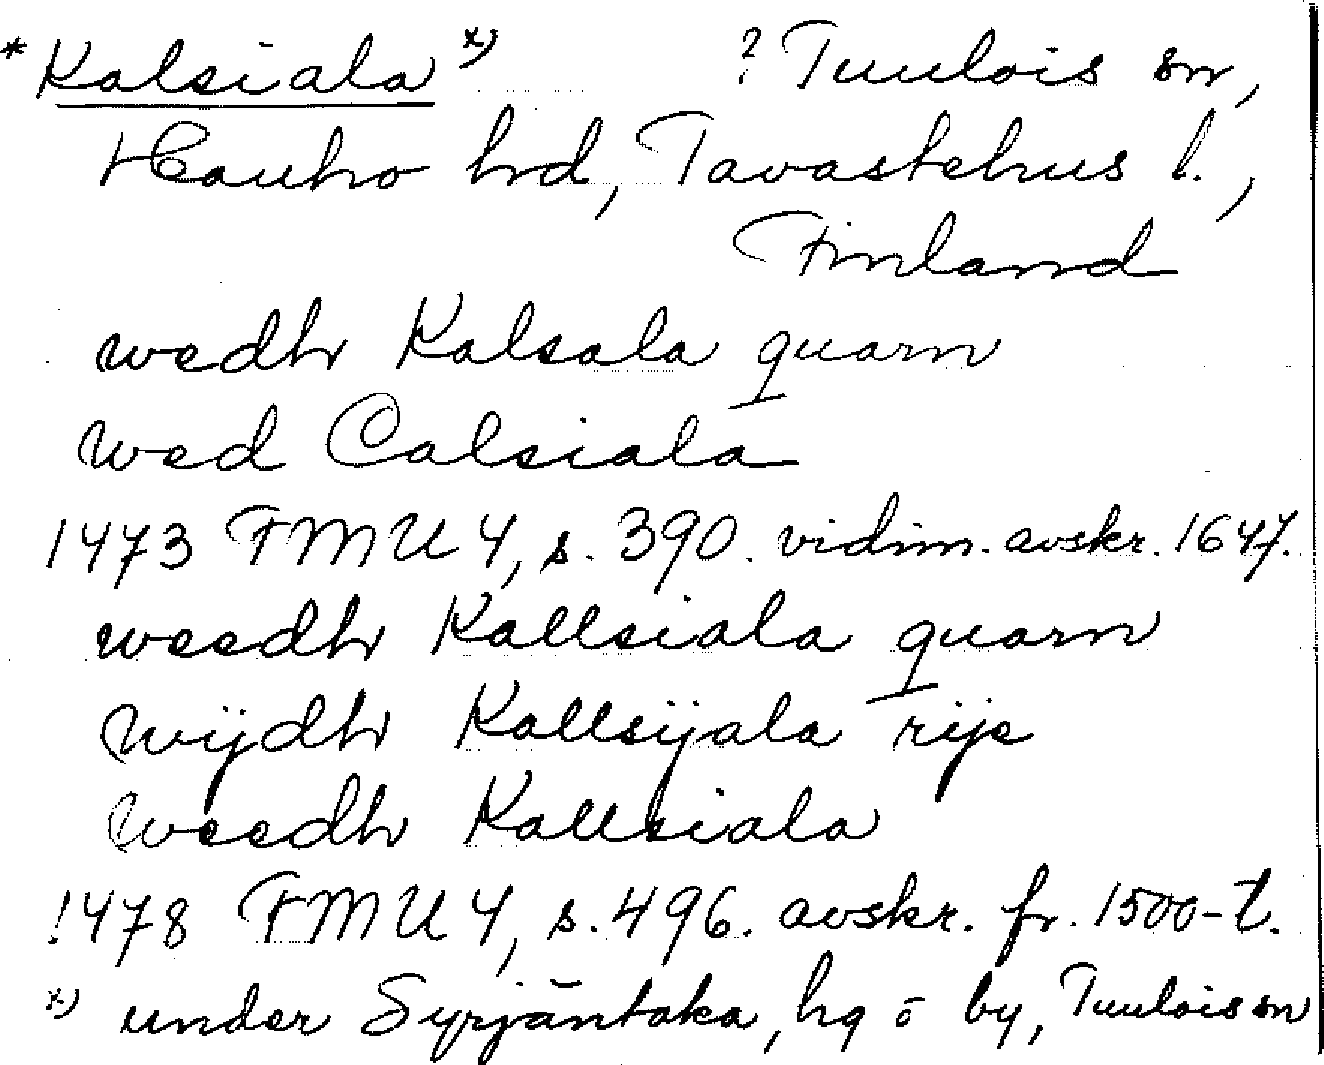 * Kalsiala x) ? Tuulois sn,
Hauho hrd, Tavastehus l.,
Finland
wedh Kalsala quarn
wed Calsiala
1473 FMU 4, s. 390. vidim. avskr. 1647.
weedh Kallsiala quarn
wijdh Kallsijala rije
weedh Kallsiala
1478 FMU 4, s. 496. avskr. fr. 1500-t.
x) under Syrjäntaka, hg o by, Tuulois sn